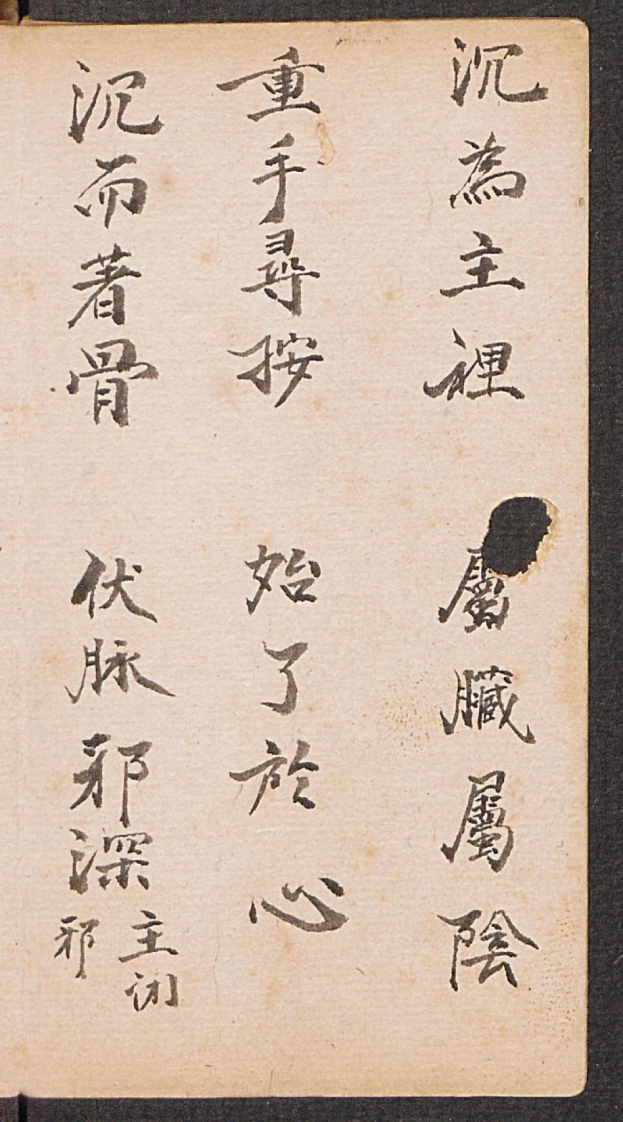 沉為主裡 屬臟屬陰
重手尋按 始了於心
沉而著骨 伏脉邪深
主閉
邪